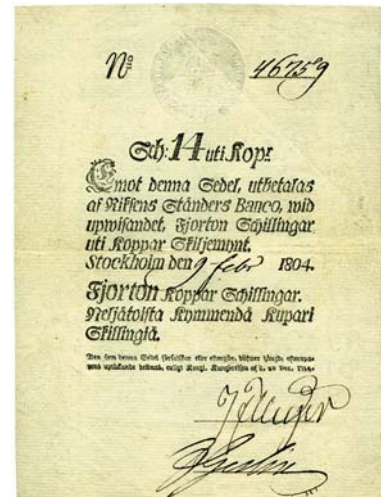 No 46759
Sch: 14 uti Kopr
Emot denna Sedel, utbetalas
af Riksens Ständers Banco, wid
upwisandet, Fjorton Schillingar
uti Koppar Skiljemynt.
Stockholm den 9 febr 1804.
Fjorton Koppar Schillingar.
Neljätoista Kymmendä Kupari
Skillingiä.
Den som denna Sedel förfalskar eller eftergör,